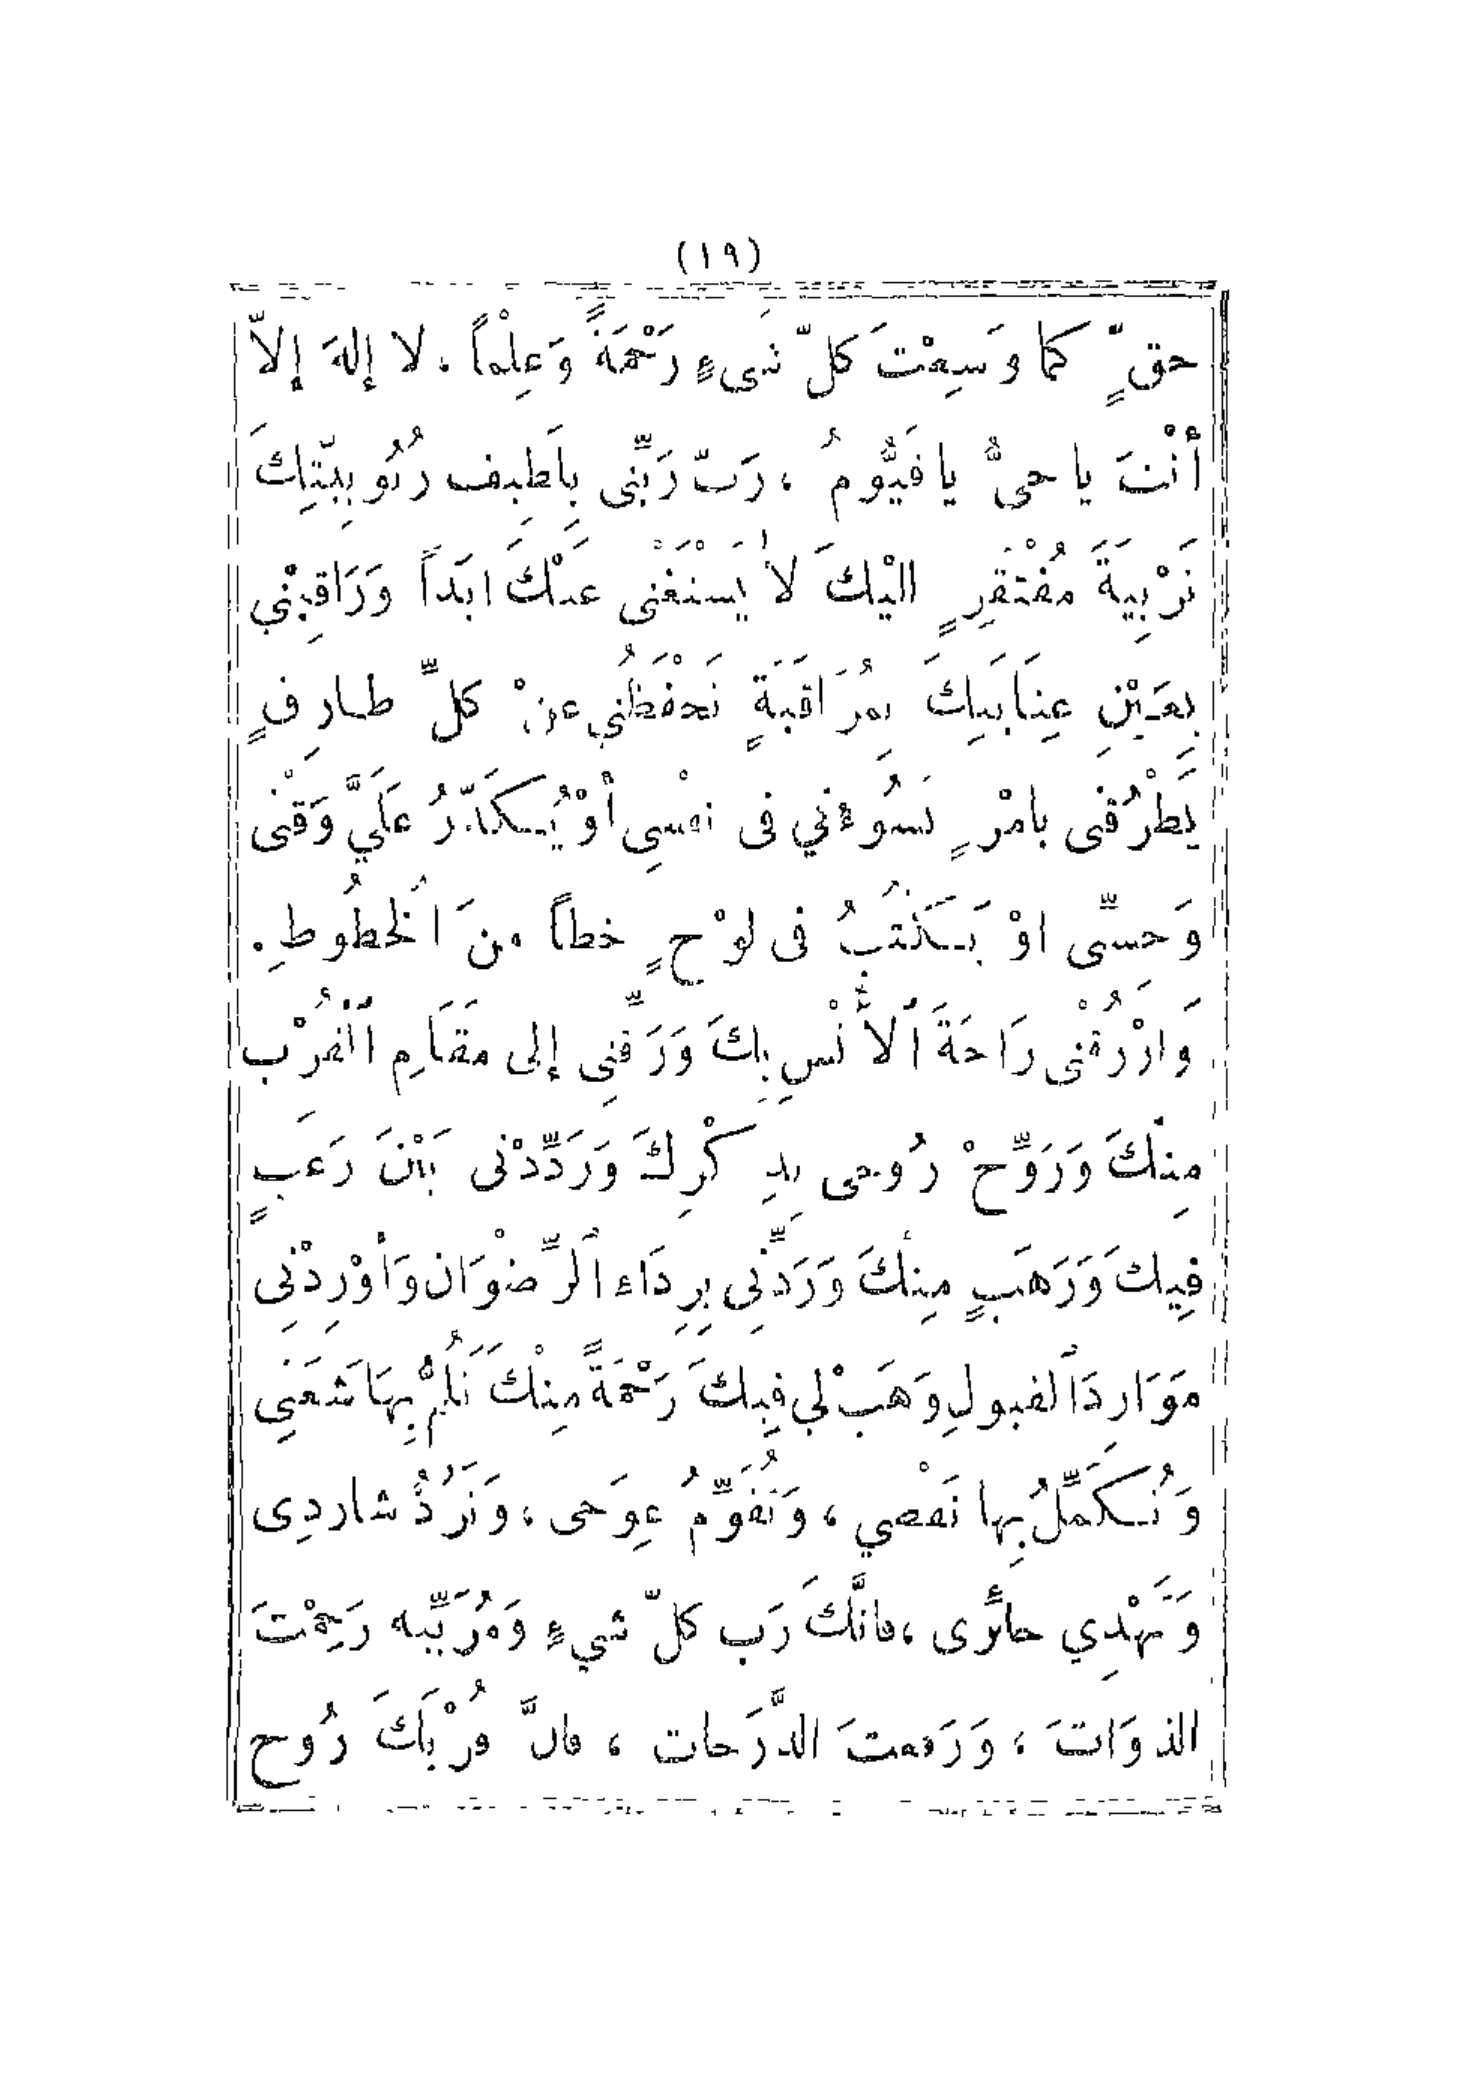 (١٩)
حقٍّ كما وَسِعْتَ كلّ شَىءٍ رَحْمَةً وَعِلْماً . لا إلهَ إلاّ
أَنْتَ يا حىُّ يا قَيُّومُ ، رَبّ رَبِّنى بِلَطِيف رُبُوبِيّتِكَ
تَرْبِيَةَ مُفْتَقِرٍ اليْكَ لاَ يَسْتَغْنى عَنْكَ ابَداً وَرَاقِبْنِي
بِعَيْنِ عِنَايَتِكَ مُرَاقَبَةٍ تَحْفَظُنِي عنْ كلِّ طارقٍ
يَطْرُقْنى بامْرٍ يَسُوءُني فى نفْسِى أَوْ يُكَدّرُ عَلَيَّ وَقْتى
وَحِسّى اوْ يَكْتُبُ فى لوْحٍ خطاً منَ اُلْخطُوطِ .
وَارْزُقْنى رَاحَةَ اَلأُنْسِ بِكَ وَرَقِّنِى إلى مقَامِ اَلْقُرْب
مِنْكَ وَرَوِّحْ رُوحى بِذِكْرِكَ وَرَدِّدْنى بَيْنَ رَغَبٍ
فِيكَ وَرَهَبٍ مِنْكَ وَرَدِّنِى بِرِدَاء اَلرِّضْوَان وَأَوْرِدْنِى
مَوَارِدَ اَلقبولِ وَهَبْ لي فِيكَ رَحْمَةً مِنْكَ تَلُمُّ بِهَا شَعَثِى
وَتُكَمِّلُ بِها نَقْصِي ، وَتُقَوِّمُ عِوَجى ، وَتَرُدُّ شاردِى
وَتَهْدِي حائرِى ، فانَّكَ رَب كلّ شيءٍ وَمُرَبِّيه رَحِمْتَ
الذوَاتَ ، وَرَفعتَ الدَّرَجات ،  قُرْبكَ رُوح